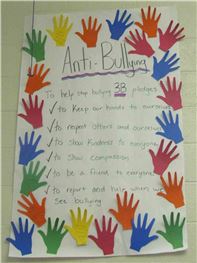 Anti-Bullying
To help stop bullying 3B pledges
✓ to Keep our hands to ourselves
✓ to respect others and ourselves
✓ to show Kindness to everyone
✓ to show compassion
✓ to be a friend to everyone
✓ to report and help when we
see bullying